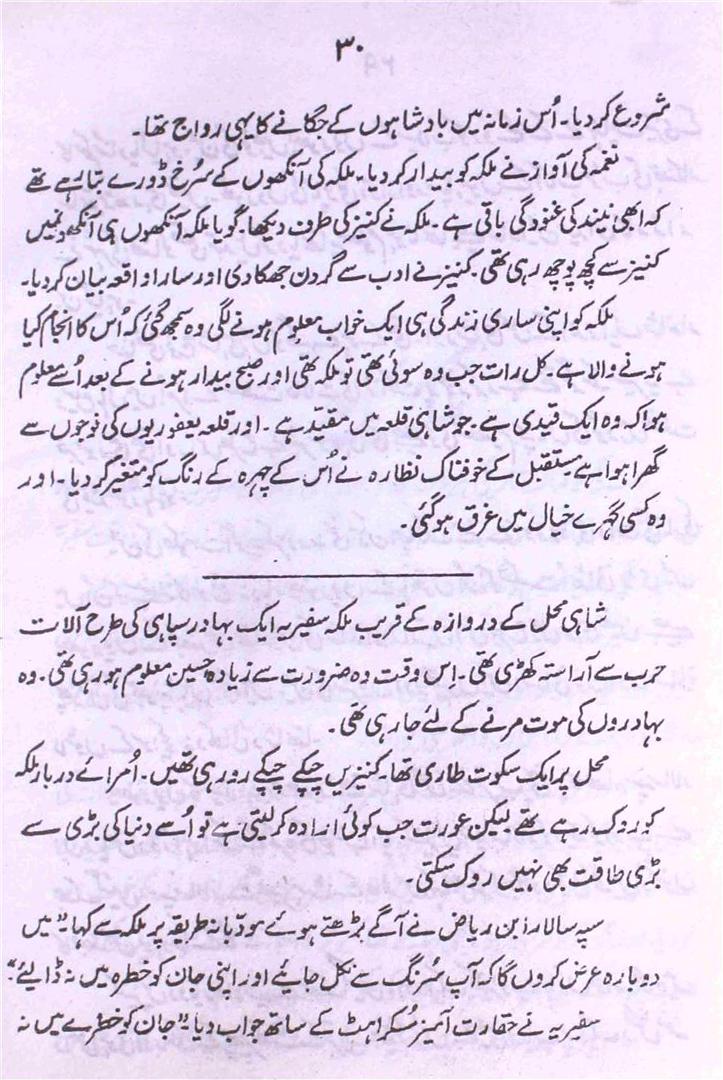 ۳۰
شروع کر دیا۔ اُس زمانہ میں بادشاہوں کے جگانے کا یہی رواج تھا۔
نغمہ کی آواز نے ملکہ کو بیدار کر دیا۔ ملکہ کی آنکھوں کے سُرخ ڈورے بتا رہے تھے
کہ ابھی نیند کی غنودگی باقی ہے۔ ملکہ نے کنیز کی طرف دیکھا۔ گویا ملکہ آنکھوں ہی آنکھوں میں
کنیز سے کچھ پوچھ رہی تھی۔ کنیز نے ادب سے گردن جھکا دی اور سارا واقعہ بیان کر دیا۔
ملکہ کو اپنی ساری زندگی ہی ایک خواب معلوم ہونے لگی وہ سمجھ گئی کہ اُس کا انجام کیا
ہونے والا ہے۔ کل رات جب وہ سوئی تھی تو ملکہ تھی اور صبح بیدار ہونے کے بعد اُسے معلوم
ہوا کہ وہ ایک قیدی ہے۔ جو شاہی قلعہ میں مقیّد ہے۔ اور قلعہ یعفوریوں کی فوجوں سے
گھرا ہوا ہے مستقبل کے خوفناک نظارہ نے اُس کے چہرہ کے رنگ کو متغیر کر دیا۔ اور
وہ کسی گہرے خیال میں غرق ہو گئی۔
شاہی محل کے دروازہ کے قریب ملکہ سفیریہ ایک بہادر سپاہی کی طرح آلات
حرب سے آراستہ کھڑی تھی۔ اس وقت وہ ضرورت سے زیادہ حسین معلوم ہو رہی تھی۔ وہ
بہادروں کی موت مرنے کے لئے جا رہی تھی۔
محل پر ایک سکوت طاری تھا۔ کنیزیں چپکے چپکے رو رہی تھیں۔ اُمرائے دربار ملکہ
کو روک رہے تھے لیکن عورت جب کوئی ارادہ کر لیتی ہے تو اُسے دنیا کی بڑی سے
بڑی طاقت بھی نہیں روک سکتی۔
سپہ سالار ابن ریاض نے آگے بڑھتے ہوئے مودبانہ طریقہ پر ملکہ سے کہا۔" میں
دوبارہ عرض کروں گا کہ آپ سُرنگ سے نکل جائیے اور اپنی جان کو خطرہ میں نہ ڈالیئے"۔
سفیریہ نے حقارت آمیز مُسکراہٹ کے ساتھ جواب دیا۔" جان کو خطرے میں نہ